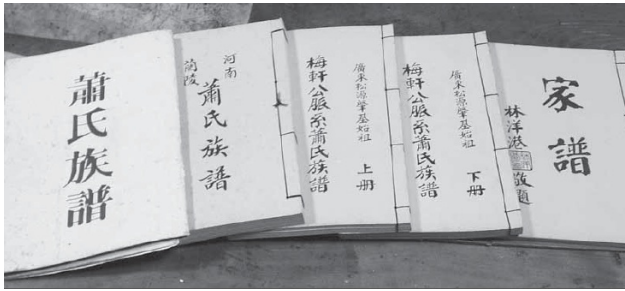 蕭氏族譜
河南
蘭陵
蕭氏族譜
廣東松源肇基始祖
梅軒公脈系蕭氏族譜
上册
廣東松源肇基始祖
梅軒公脈系蕭氏族譜
下册
家譜
林洋港
敬題